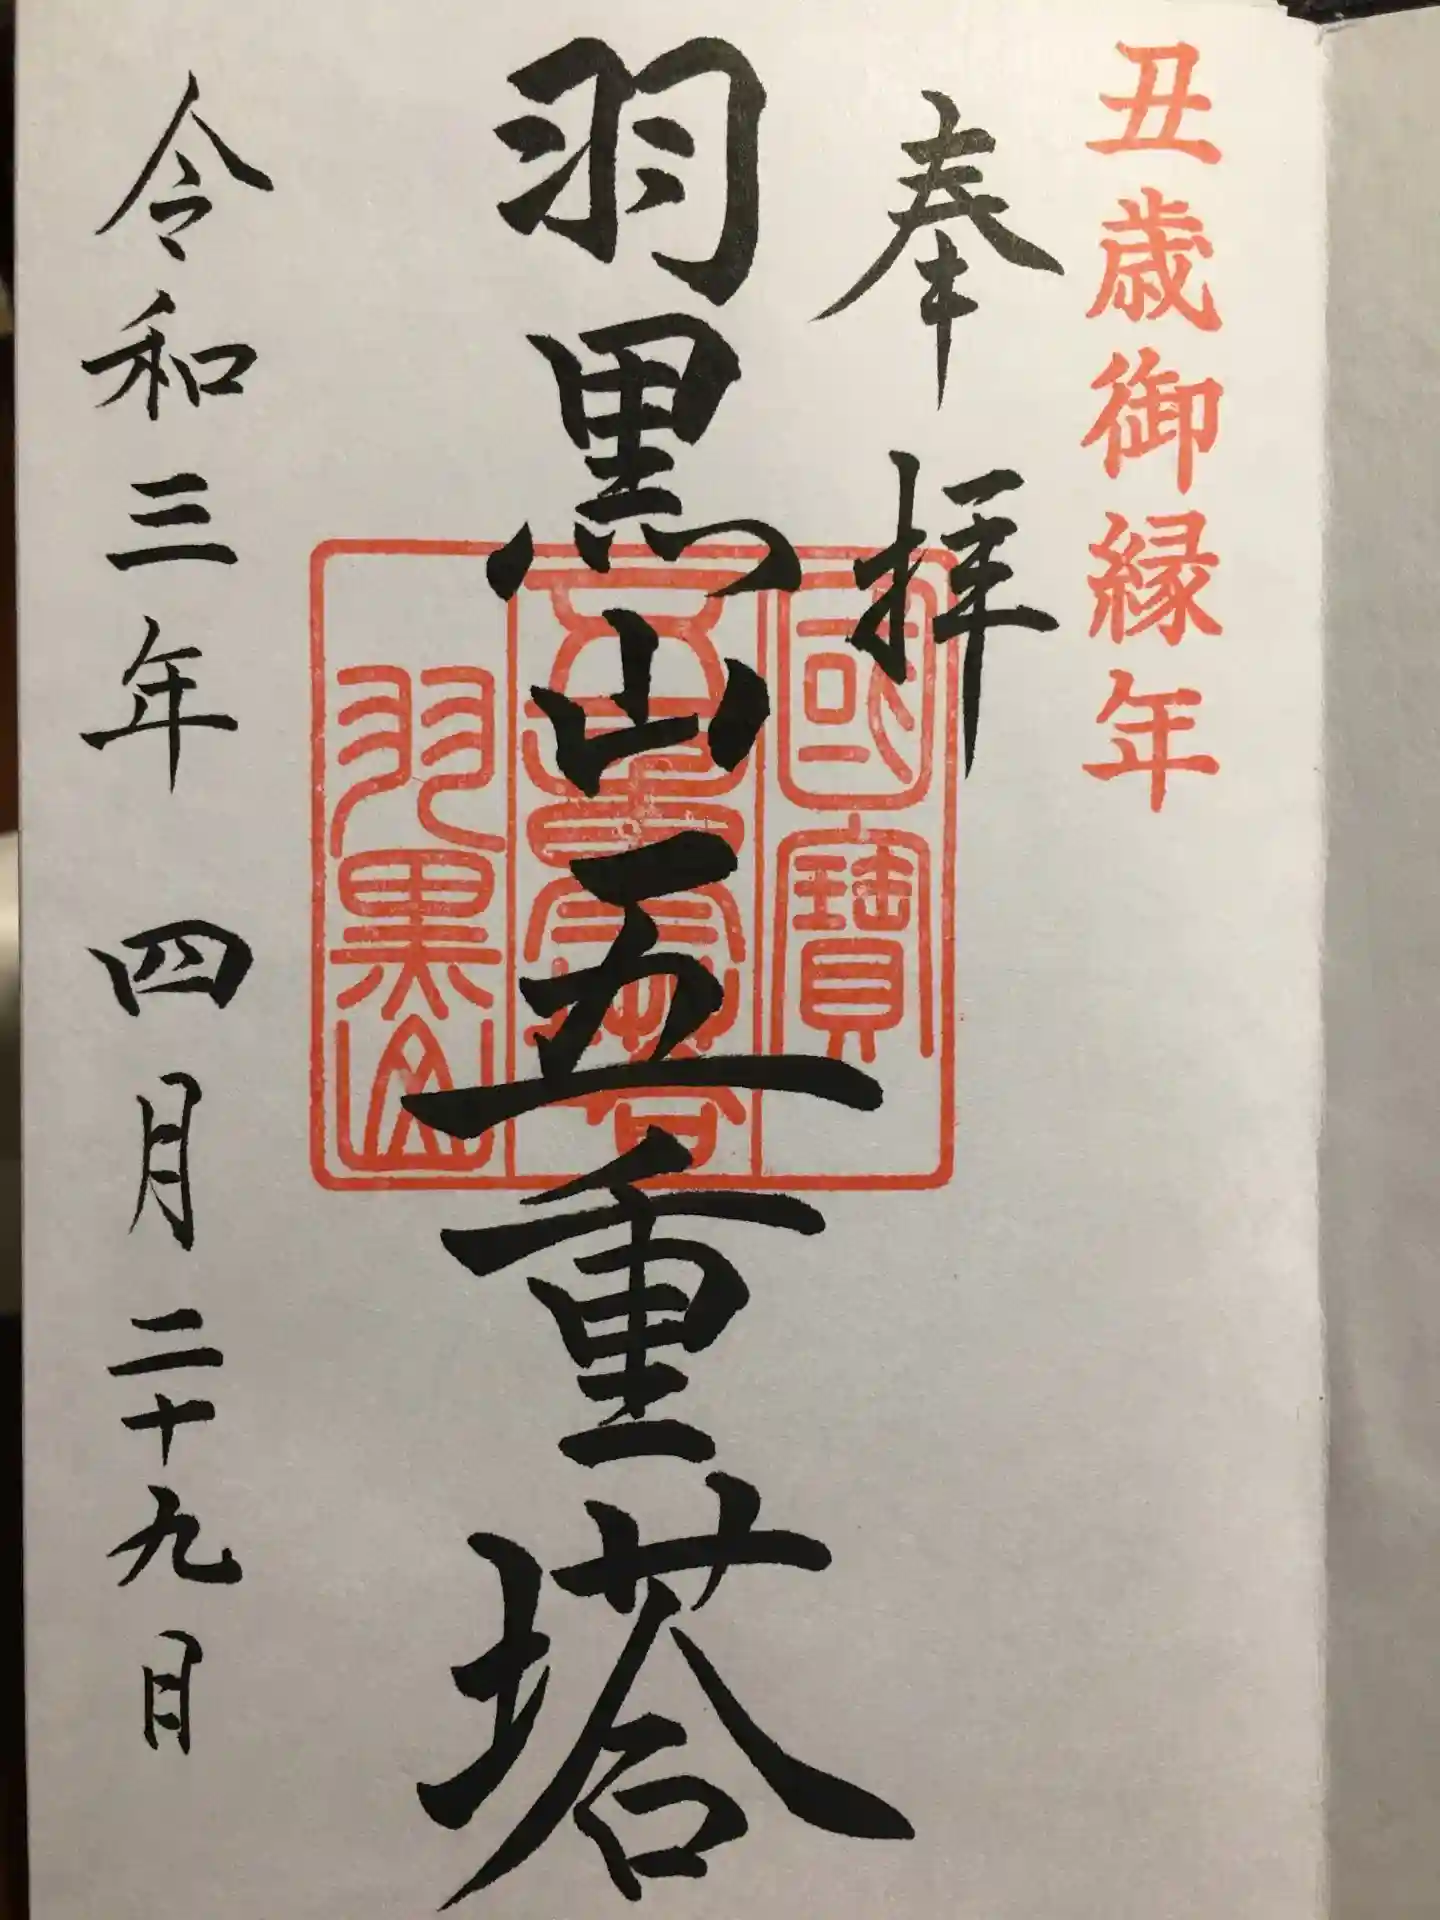 丑歳御縁年
奉拝
國寶
五重塔
羽黒山
羽黒山五重塔
令和三年 四月二十九日